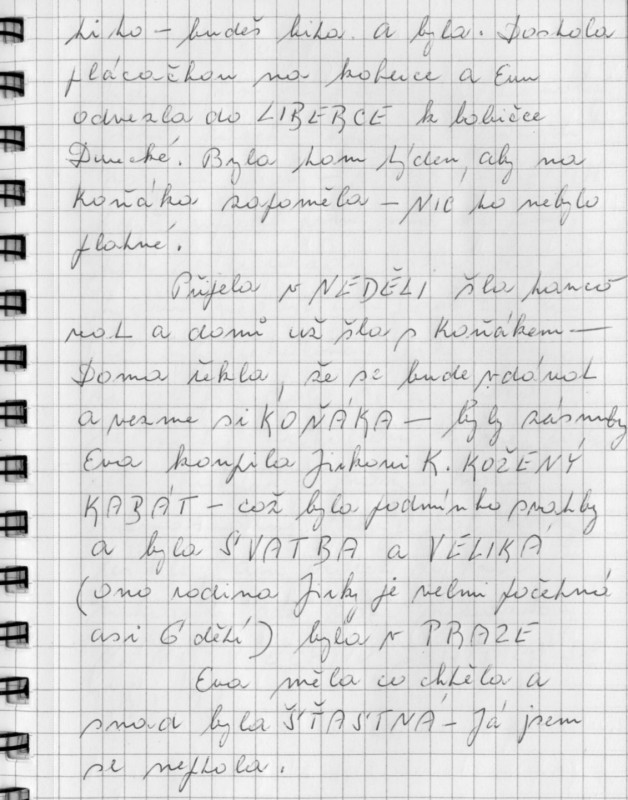 ti to – budeš bita. a byla. Dostala
plácačkou na koberce a Evu
odvezla do LIBERCE k babičce
Byla tam týden, aby na
Koňáka zapoměla – NIC to nebylo
platné.
Přijela v NEDĚLI šla tanco
vat a domů už šla s Koňákem –
Doma řekla, že se bude vdávat
a vezme si KOŇÁKA – byly zásnuby
Eva koupila Jirkovi K. KOŽENÝ
KABÁT – což byla podmínka svatby
a byla SVATBA a VELIKÁ
(ono rodina Jirky je velmi početná
asi 6 dětí) byla v PRAZE
Eva měla co chtěla a
snad byla ŠŤASTNÁ – Já jsem
se neptala.